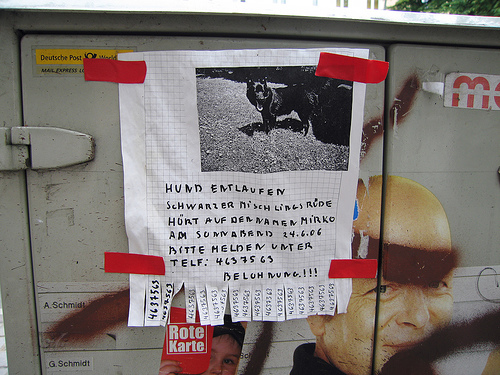 Deutsche Post World
MAIL EXPRESS
me
HUND ENTLAUFEN
SCHWARZER MISCHLINGSRÜDE
HÖRT AUF DEN NAMEN MIRKO
AM SONNABEND 24.6.06
BITTE MELDEN UNTER
TELF: 4637563
BELOHNUNG!!!
4637563
4637563
4637563
4637563
4637563
4637563
4637563
4637563
4637563
4637563
4637563
A.Schmidt
Rote
Karte
G.Schmidt